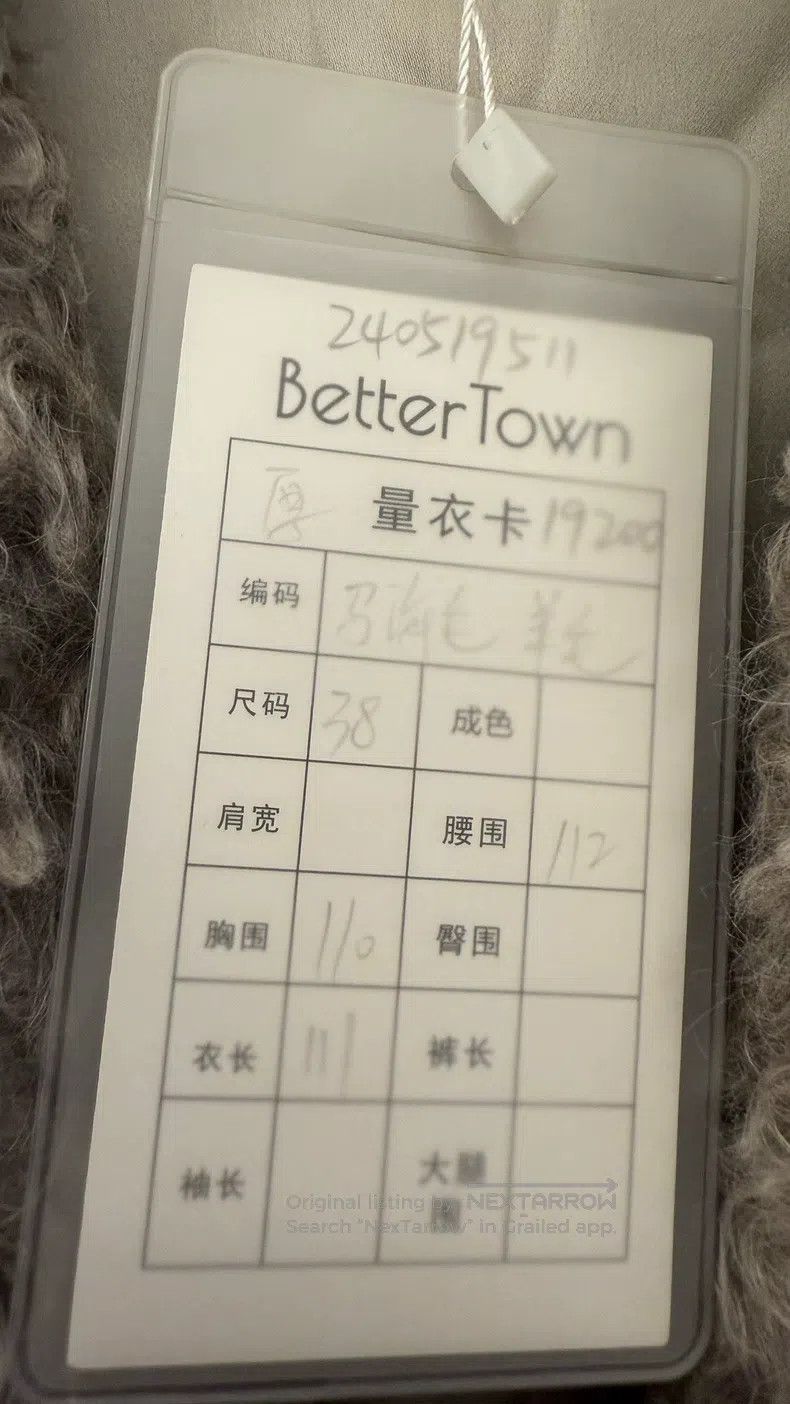 240519511
BetterTown
厚 量衣卡 19200
编码 马海毛 羊毛
尺码 38 成色
肩宽 腰围 112
胸围 110 臀围
衣长 111 裤长
袖长 大腿
Original listing by NEXTARROW
Search "NexTarrow" in Grailed app.